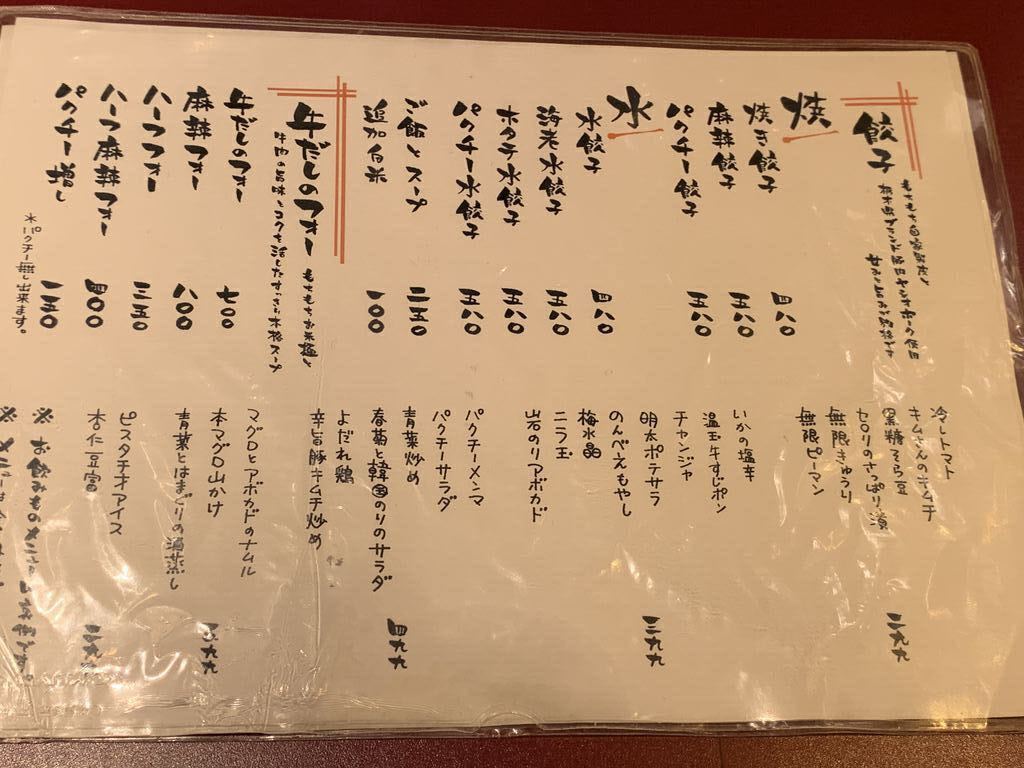 餃子
もちもち自家製皮と
栃木県ブランド豚ヤシオポーク使用
甘みと旨みが
焼
焼き餃子 四八〇
麻辣餃子 五八〇
パクチー餃子 五八〇
水
水餃子 四八〇
海老水餃子 五八〇
ホタテ水餃子 五八〇
パクチー水餃子 五八〇
ご飯とスープ 二五〇
追加白米 一〇〇
牛だしのフォー
もちもちお米麺と
牛肉の旨味とコクを活したすっきり本格スープ
牛だしのフォー 七〇〇
麻辣フォー 八〇〇
ハーフフォー 三五〇
ハーフ麻辣フォー 四〇〇
パクチー増し 一五〇
※パクチー無し出来ます。
冷しトマト
キムさんのキムチ
黒糖そら豆
セロリのさっぱり漬
無限きゅうり
無限ピーマン
二九九
いかの塩辛
温玉牛すじポン
チャンジャ
明太ポテサラ
のんべえもやし
梅水晶
ニラ玉
岩のりアボカド
三九九
パクチーメンマ
パクチーサラダ
青菜炒め
春菊と韓国のりのサラダ
よだれ鶏
辛旨豚キムチ炒め
四九九
マグロとアボカドのナムル
本マグロ山かけ
青菜とはまぐりの酒蒸し
五九九
ピスタチオアイス
杏仁豆腐
二九九
※お飲みものメニューは裏側です。
※メニューは